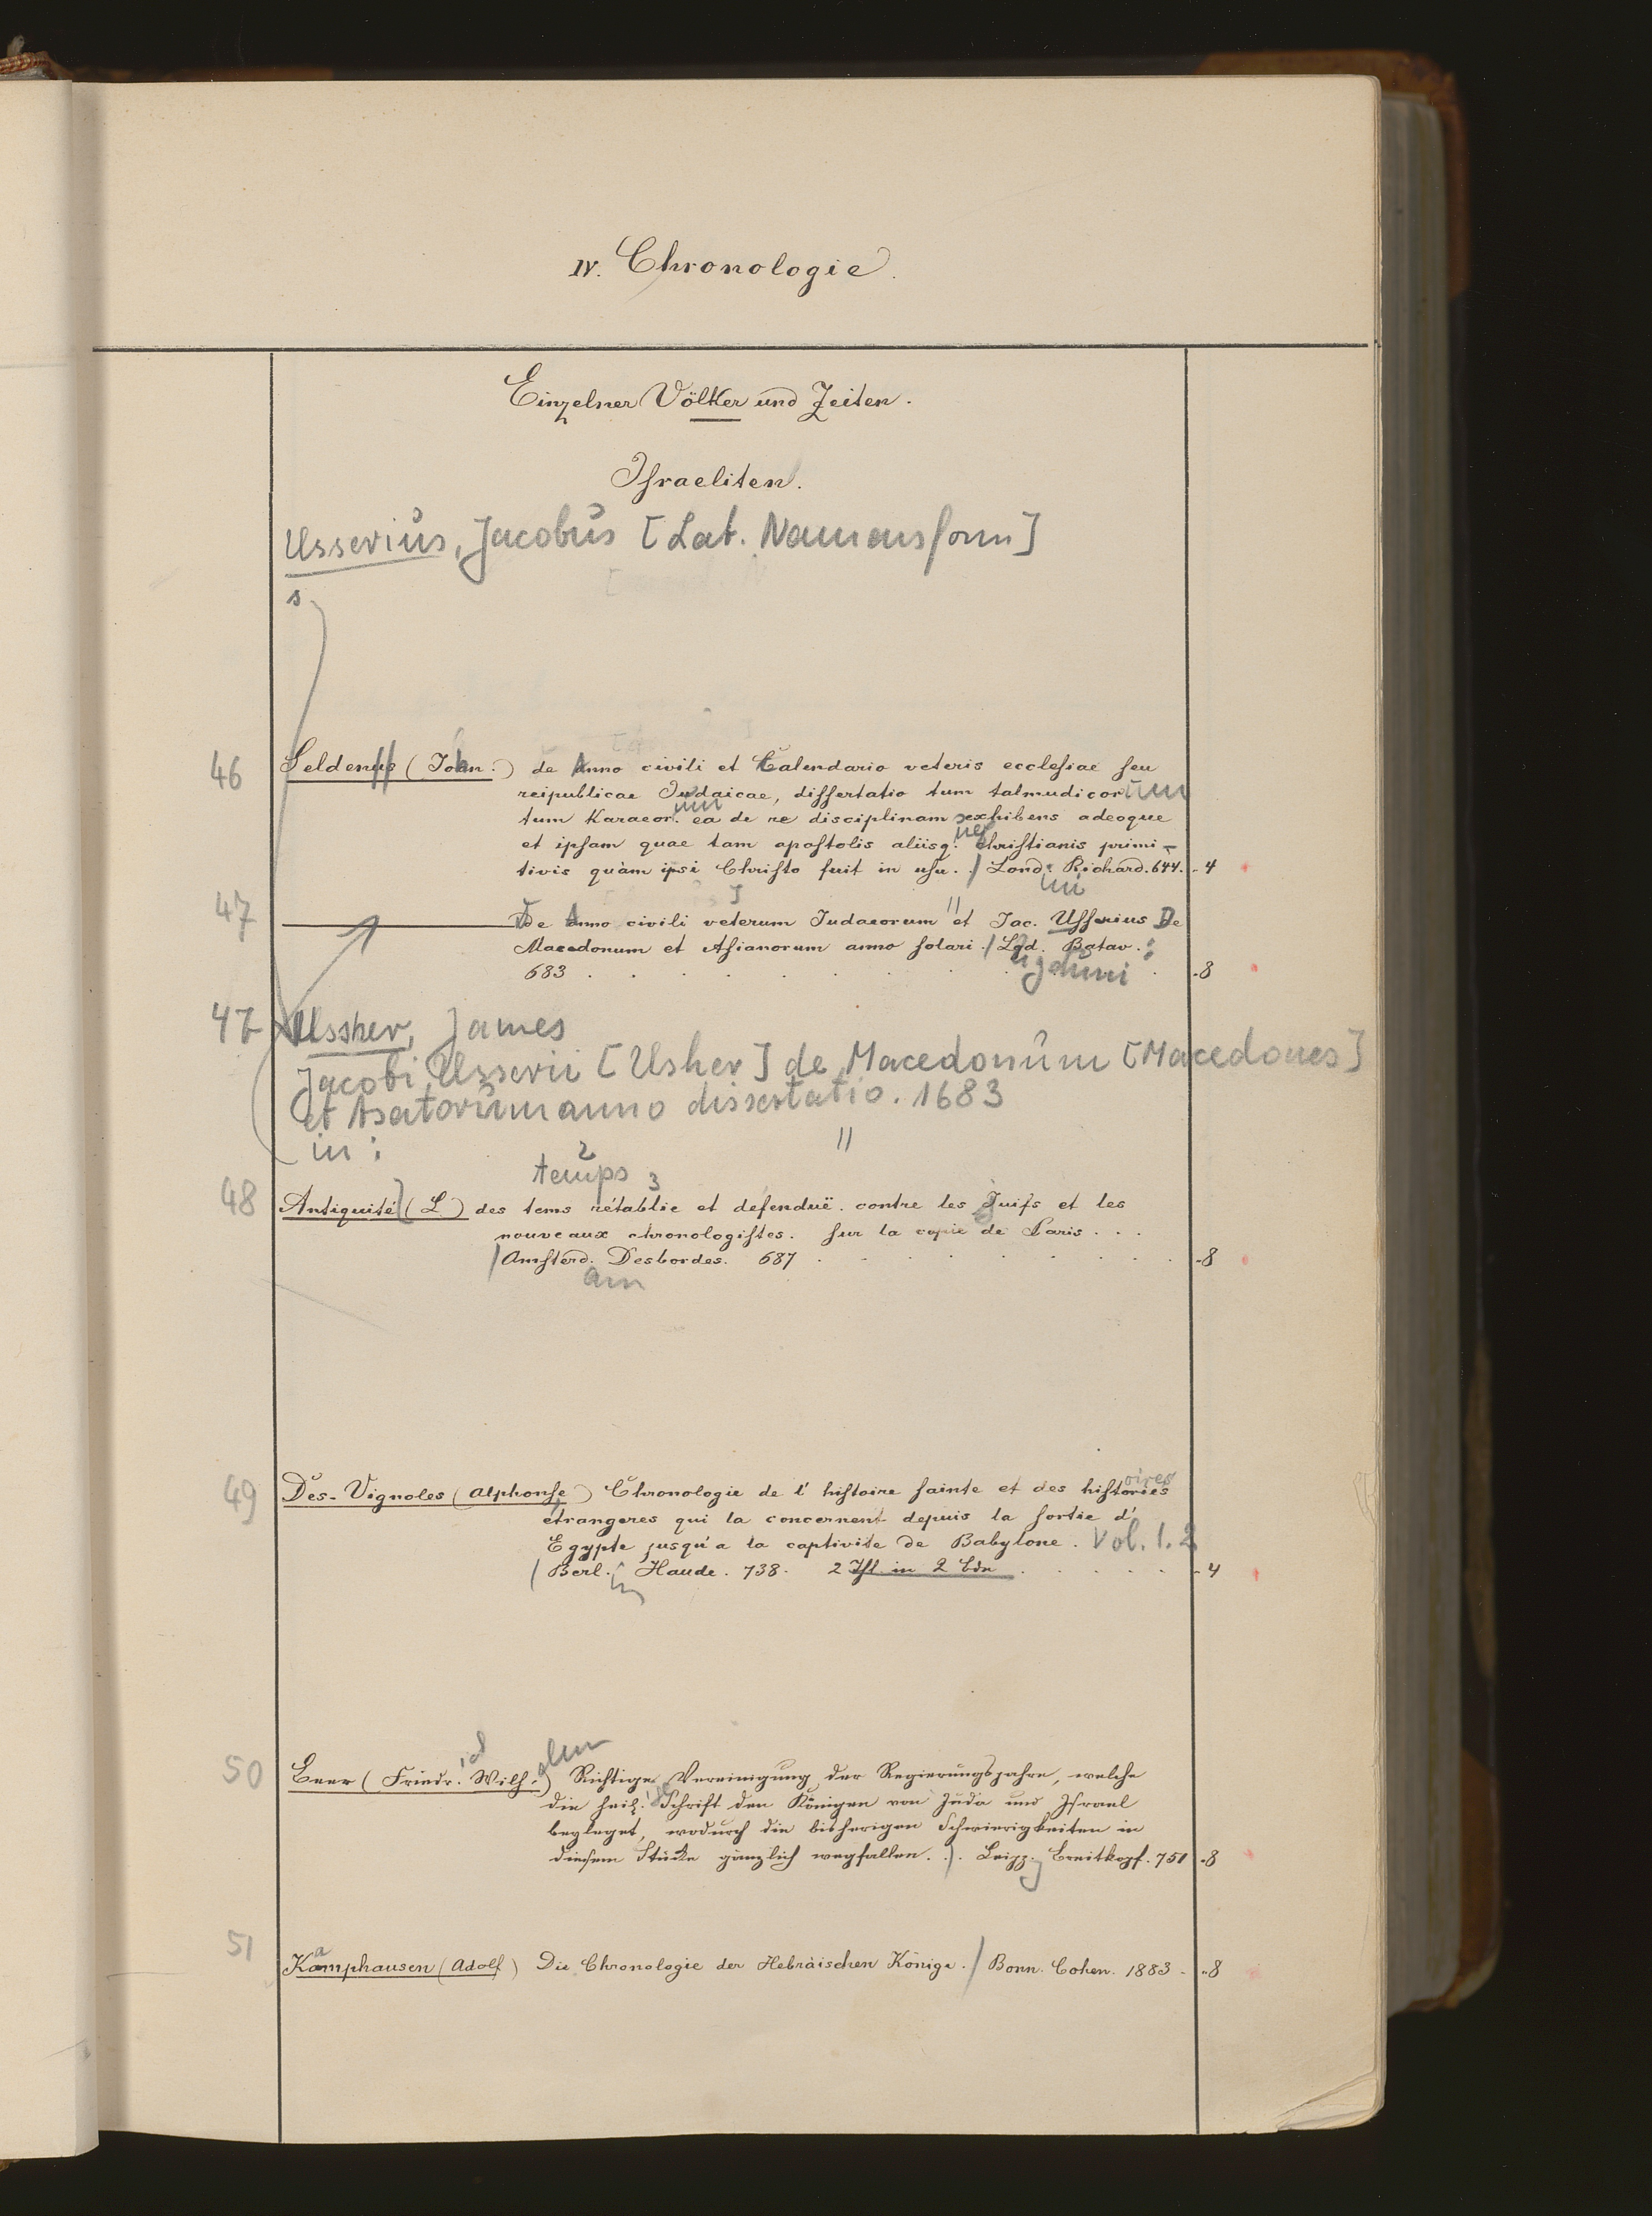 IV. Chronologie.
Einzelner Völker und Zeiten.
Israeliten.
Usserius, Jacobus [Lat. Namensform]
s
46 Seldenus (Iohn.) de Anno civili et Calendario veteris ecclesiae seu
reipublicae Judaicae, dissertatio tum talmudicorum
tum Karaeor. um ea de re disciplinam exhibens adeoque
et ipsam quae tam apostolis aliisq. ue Christianis primi-
tivis quàm ipsi Christo fuit in usu. / Lond. ini Richard. 644. - 4
47 De Anno civili veterum Judaeorum et Jac. Usserius De
Macedonum et Asianorum anno solari. / Lgd. ugduni Batav.:
683 . . . . . - 8
47 Ussher, James
Jacobi Usserii [Usher] de Macedonum [Macedones]
et Asatorum anno dissertatio. 1683
in:
temps 2 3
48 Antiquité (L') des tems rétablie et défenduë. contre les Juifs et les
nouveaux chronologistes. Sur la copie de Paris . . .
/ Amsterd. am Desbordes. 687 . . . . . - 8
49 Des-Vignoles (Alphonse) Chronologie de l' histoire sainte et des histories oires
étrangeres qui la concernent depuis la sortie d'
Egypte jusqu'a la captivite de Babylone. Vol. 1. 2
/ Berl. in Haude. 738. 2 Thl. in 2 Bdn . . . . . - 4
50 Beer (Friedr. ich Wilh. elm) Richtige Vereinigung der Regierungsjahre, welche
die heil. ige Schrift den Königen von Juda und Israel
begleget, wodurch die bisherigen Schwierigkeiten in
diesem Stücke gänzlich wegfallen. / Leipz. g Breitkopf. 751 - 8
51 Kamphausen (Adolf) Die Chronologie der Hebräischen Könige. / Bonn. Cohen. 1883 - 8